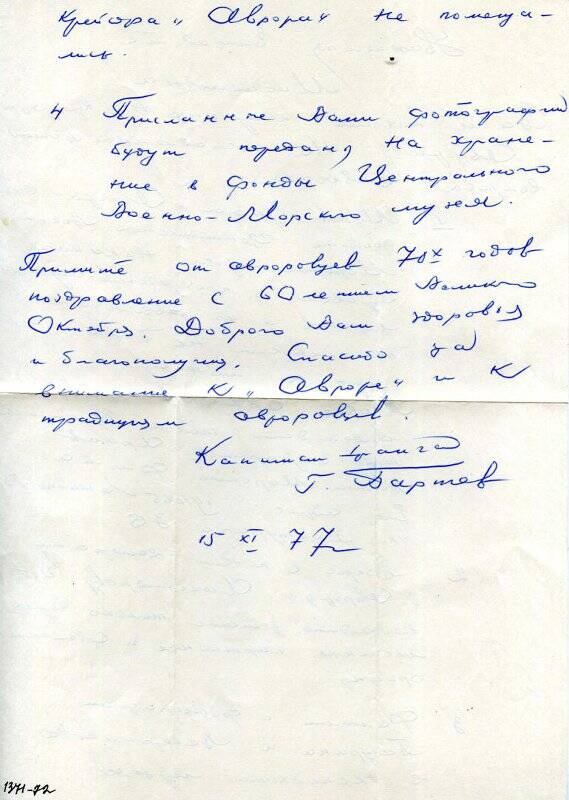 крейсера „Аврора“ не помеща-
лись.
4 Присланные Вами фотографии
будут переданы на хране-
ние в фонды Центрального
Военно-Морского музея.
Примите от авроровцев 70х годов
поздравление с 60летием Великого
Октября. Доброго Вам здоровья
и благополучия. Спасибо за
внимание к „Авроре“ и к
традициям авроровцев.
Капитан I ранга
Г. Бартев
15 XI 77
1371-72